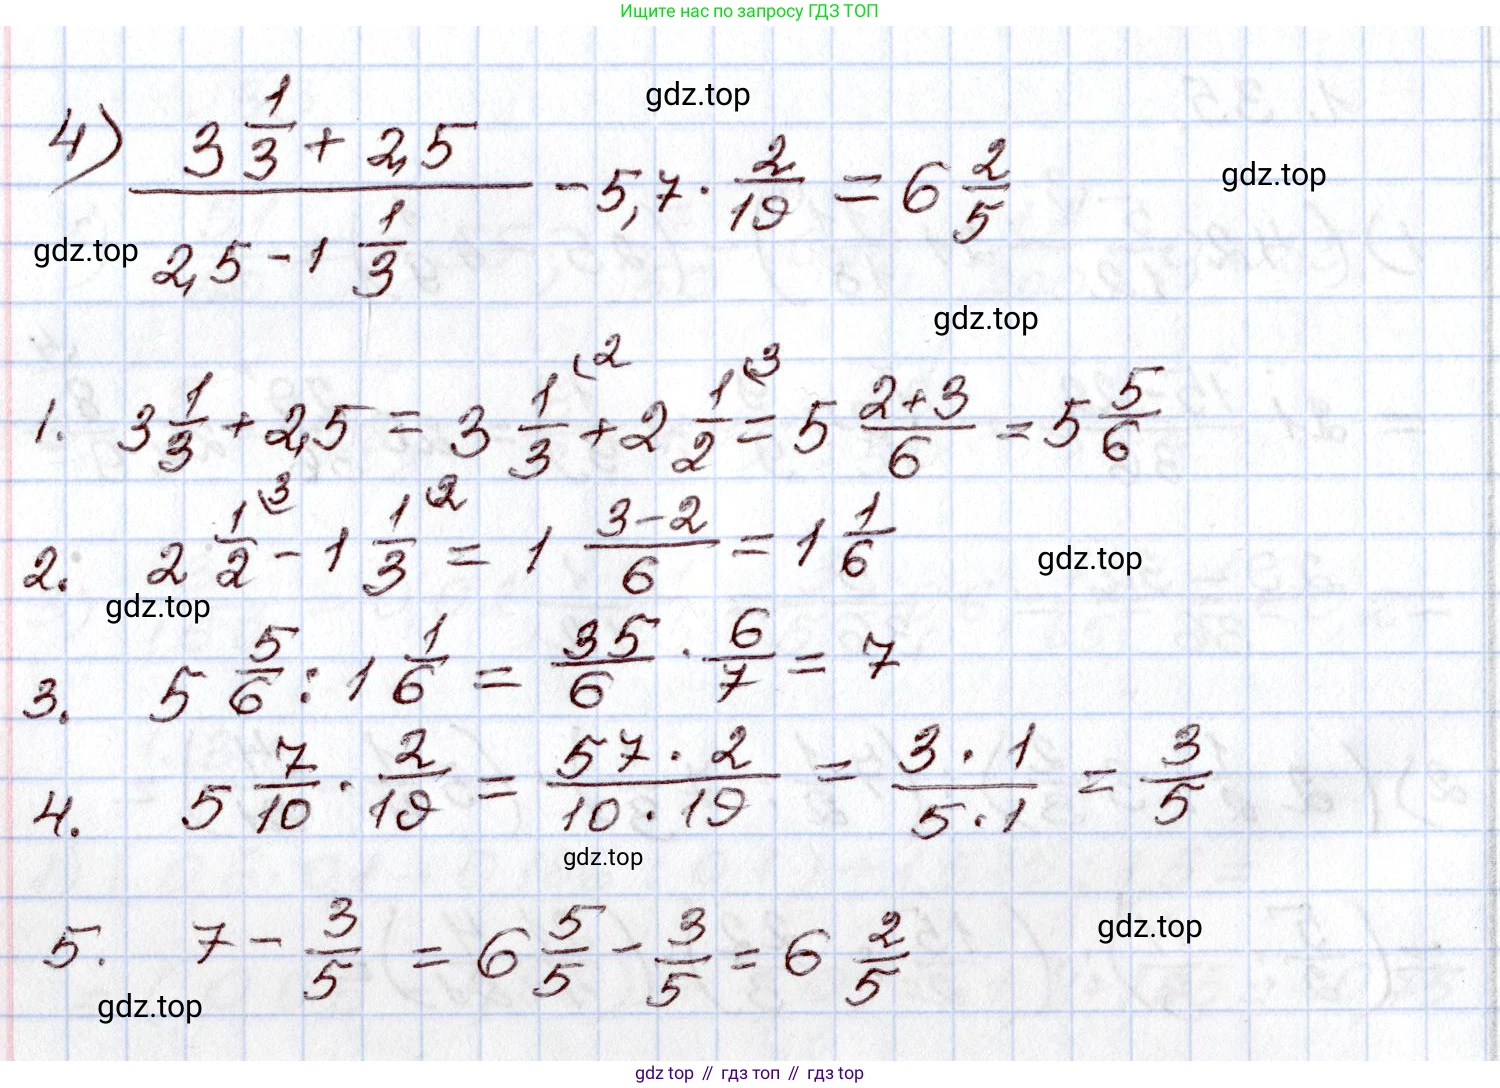 Ищите нас по запросу ГДЗ ТОП
4) (3 1/3 + 2,5)/(2,5 - 1 1/3) - 5,7 · 2/19 = 6 2/5
gdz.top
gdz.top
gdz.top
gdz.top
1. 3 1/3 + 2,5 = 3 1/3 ⁽² + 2 1/2 ⁽³ = 5 (2+3)/6 = 5 5/6
2. 2 1/2 ⁽³ - 1 1/3 ⁽² = 1 (3-2)/6 = 1 1/6
gdz.top
gdz.top
3. 5 5/6 : 1 1/6 = 35/6 · 6/7 = 7
4. 5 7/10 · 2/19 = (57 · 2)/(10 · 19) = (3 · 1)/(5 · 1) = 3/5
gdz.top
5. 7 - 3/5 = 6 5/5 - 3/5 = 6 2/5
gdz.top
gdz.top
gdz top // гдз топ // гдз top